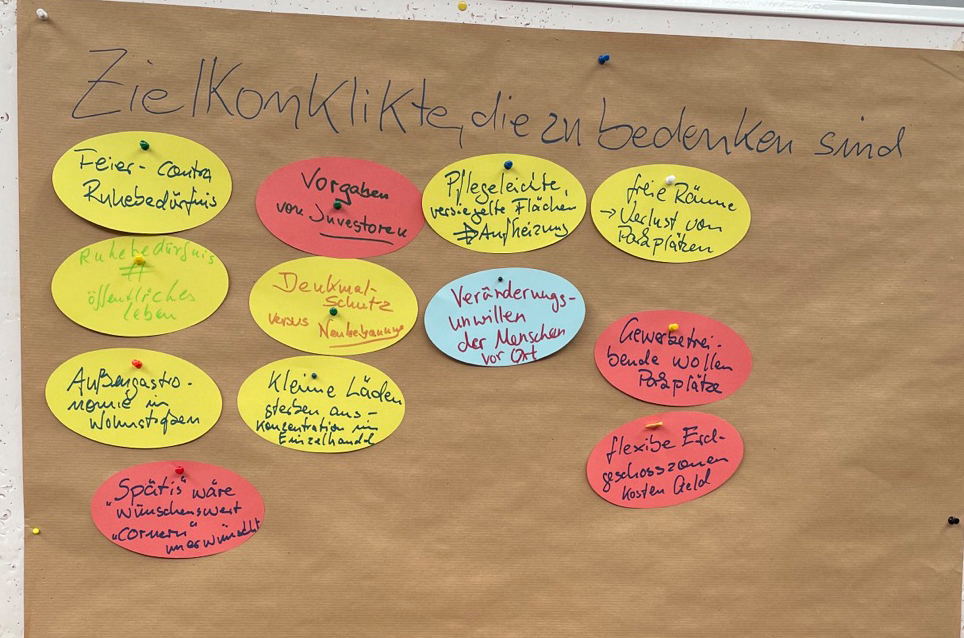 Zielkonklikte, die zu bedenken sind
Feier- contra
Ruhebedürfnis
Ruhebedürfnis
#
öffentliches
leben
Außengastro-
nomie in
Wohnstraßen
"Spätis" wäre
"wünschenswert
"cornern"
unerwünscht
Vorgaben
von Investoren
Denkmal-
Schutz
versus Neubebauung
Kleine Läden
sterben aus -
Konzentration im
Einzelhandel
Pflegeleichte,
versiegelte Flächen
⇒ Aufheizung
Veränderungs-
unwillen
der Menschen
vor Ort
freie Räume
→ Verlust von
Parkplätzen
Gewerbetrei-
bende wollen
Parkplätze
flexible Erd-
geschosszonen
kosten Geld